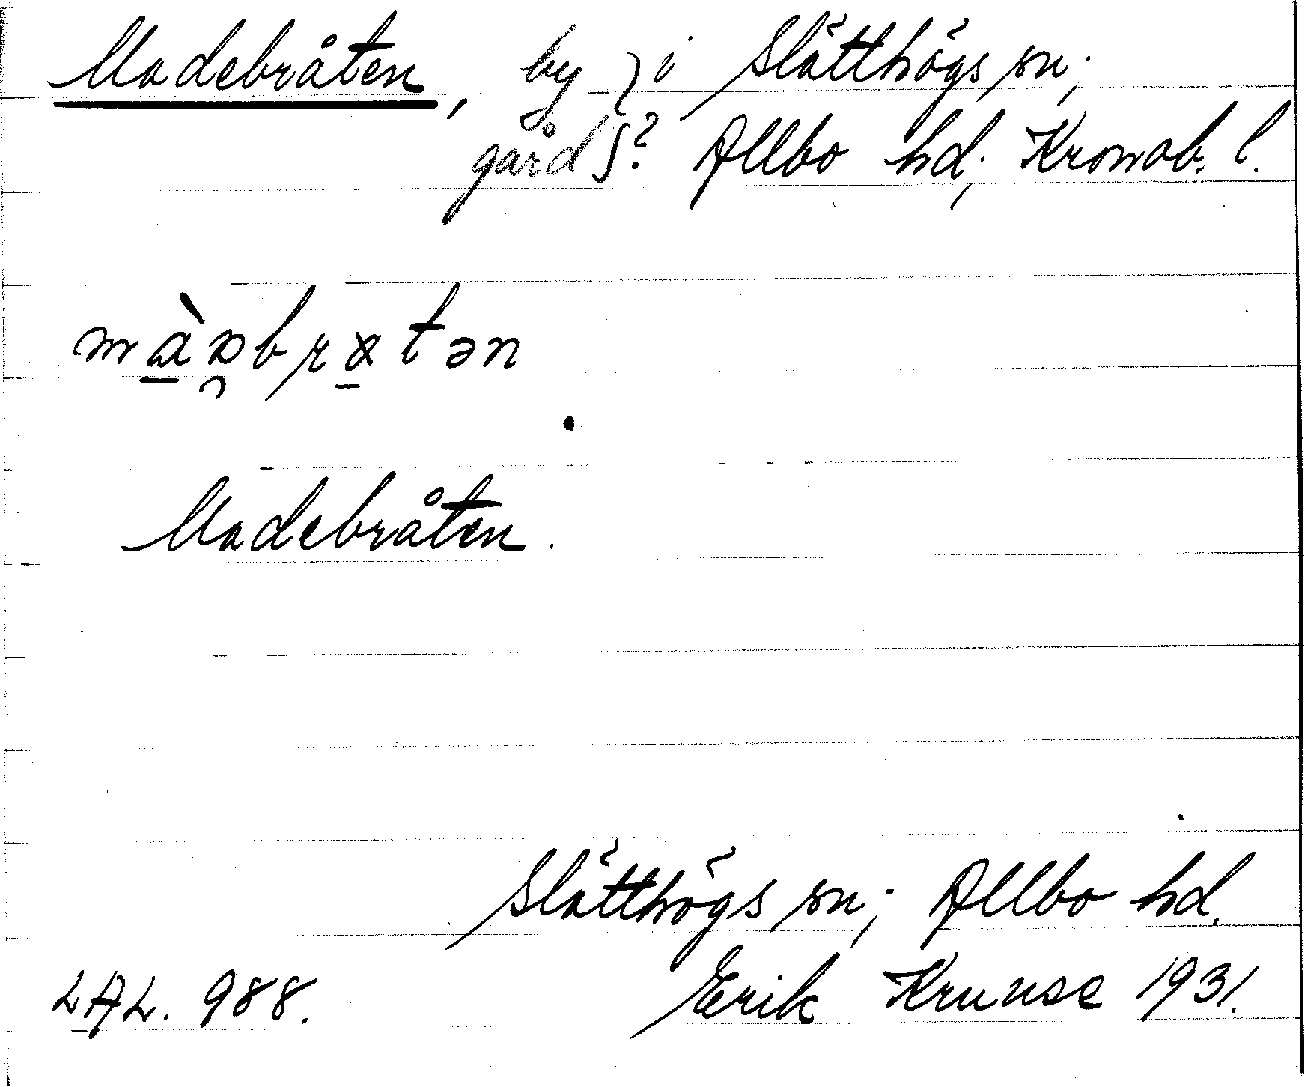 Madebråten, by } i Slätthögs sn;
gård }? Allbo hd, Kronob. l.
Madebråten.
Slätthögs sn; Allbo hd.
LAL. 988. Erik Kruuse 1931.